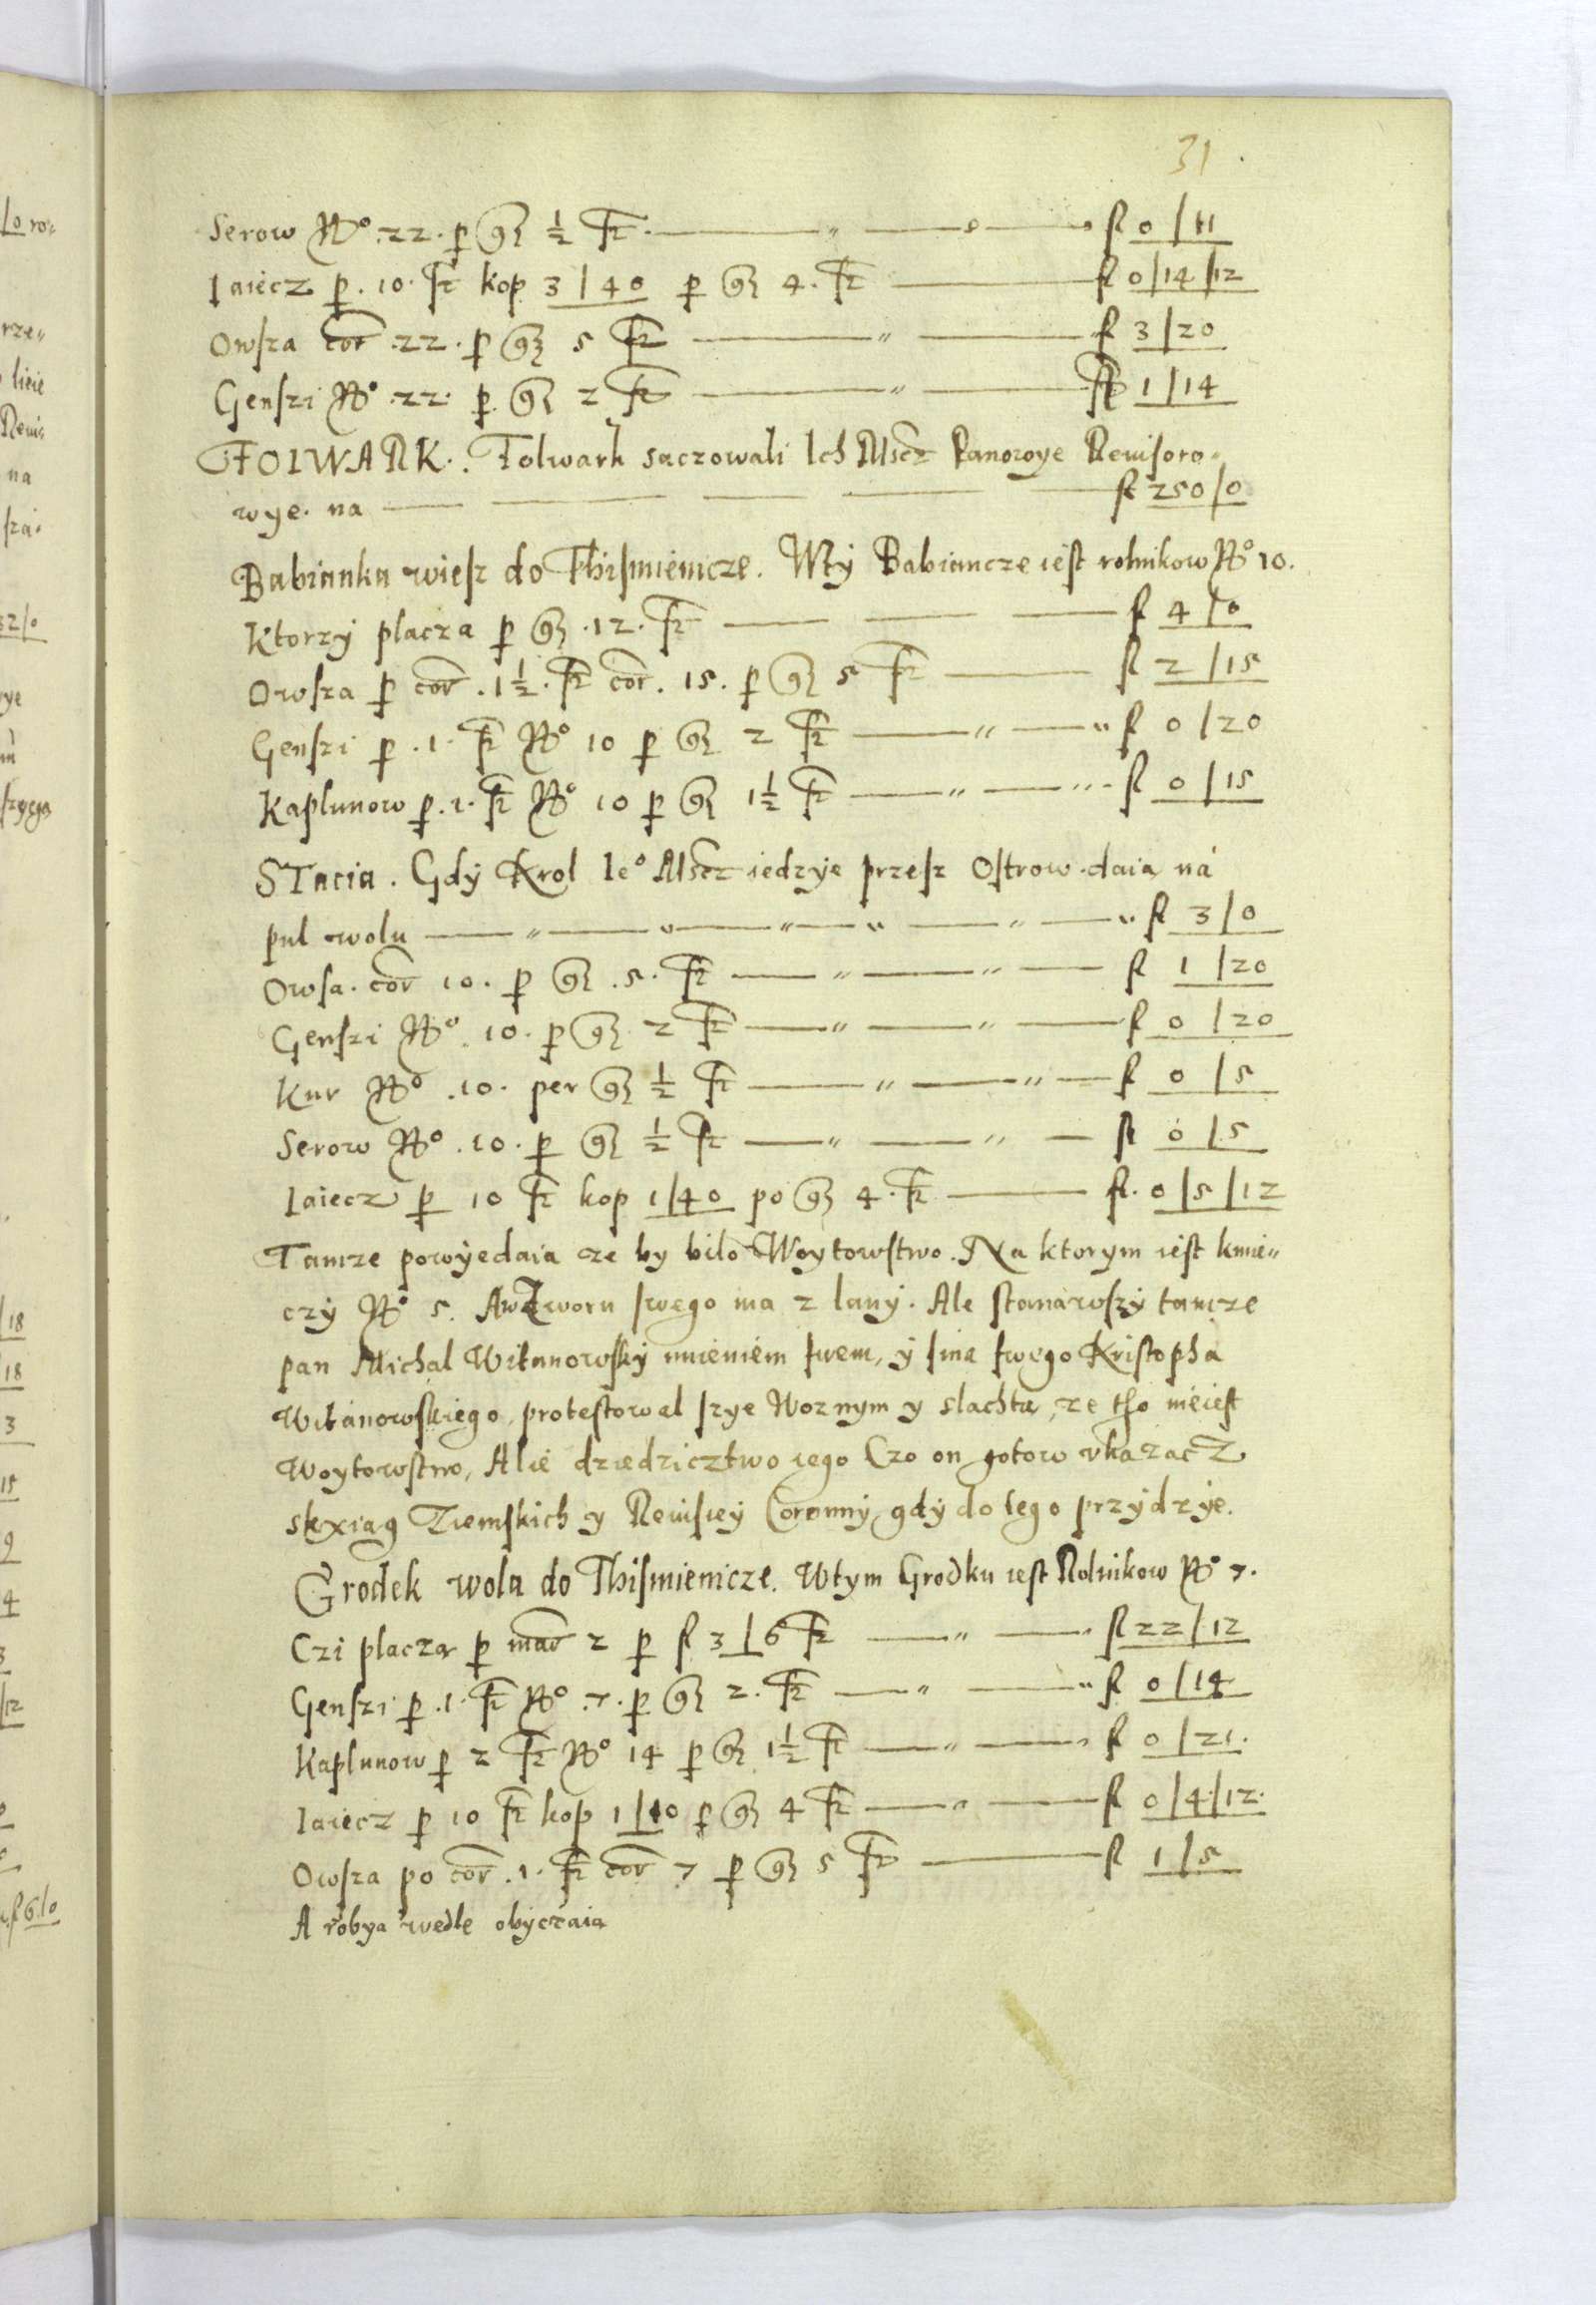 31.
Serow No 22. p gr ½ fr. fl 0/11
Iaiecz p. 10. fr kop 3/40 p gr 4. fr fl 0/14/12
Owsza cor 22. p gr 5 fr fl 3/20
Genszi No 22. p. gr 2 fr fl 1/14
FOLWARK. Folwark saczowali Ich Mscz Panowye Reuisoro-
wye. na fl 250/0
Babianka wiesz do Thismienicze. Wtÿ Babiancze iest rolnikow No 10.
Ktorzÿ placza p gr. 12. fr fl 4/0
Owsza p cor. 1½. fr cor. 15. p gr 5 fr fl 2/15
Genszi p. 1. fr No 10 p gr 2 fr fl 0/20
Kaplunow p. 1. fr No 10 p gr 1½ fr fl 0/15
STacia. Gdÿ Krol Ieo Mscz iedzye przesz Ostrow. daia ná
pul wolu fl 3/0
Owsa. cor 10. p gr. 5. fr fl 1/20
Genszi No. 10. p gr 2 fr fl 0/20
Kur No. 10. per gr ½ fr fl 0/5
Serow No. 10. p gr ½ fr fl 0/5
Iaiecz p 10 fr kop 1/40 po gr 4. fr fl. 0/5/12
Tamze powÿedaia ze by bilo Woytowstwo. Na ktorym iest kmie-
czÿ No 5. swego ma 2 lanÿ. Ale stanawszÿ tamze
pan Michal Witanowskÿ imieniem swem, ÿ sina swego Kristopha
Witanowskiego, protestowal szye Woznym y slachta, ze tho nieiest
Woytowstwo, Alie dziedzicztwo iego Czo on gotow vkazac Z
skxiąg Ziemskich y Reuisieÿ Coronnÿ, gdÿ do tego przÿdzÿe.
Grodek wola do Thismienicze. Wtym Grodku iest Rolnikow No 7.
Czi placzą p mar 2 p fl 3/6 fr fl 22/12
Genszi p. 1. fr No. 7. p gr 2. fr fl 0/14
Kaplunow p 2 fr No 14 p gr 1½ fr fl 0/21.
Iaiecz p 10 fr kop 1/10 p gr 4 fr fl 0/4/12.
Owsza po cor. 1. fr cor 7 p gr 5 fr fl 1/5
A robya wedle obyczaia